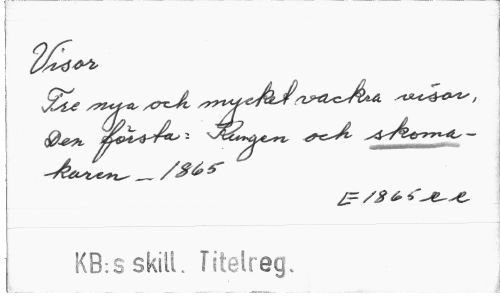 Visor
Tre nya och mycket vackra visor,
Den första: Kungen och skoma-
karen _ 1865
E 1865 e e
KB:s skill. Titelreg.